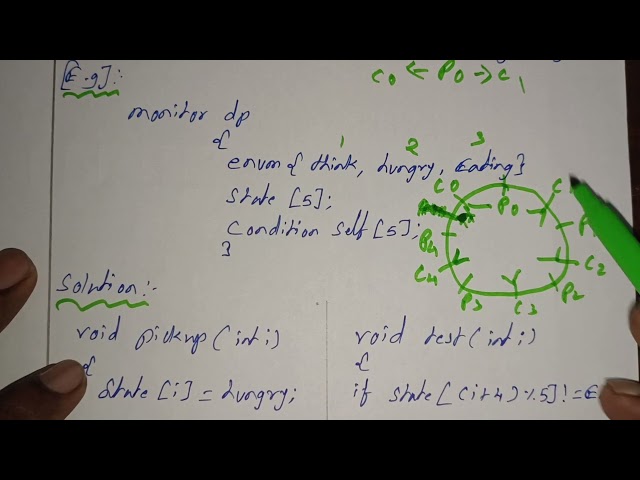 [E.g]:-
C0 ← P0 → C1
monitor dp
{
1 2 3
enum { think, hungry, Eating}
State [5];
Condition self [5];
}
C0 P0 C
P4 P
C4 C2
P3 C3 P2
Solution:-
void pickup (int i)
{
State [i] = hungry;
void test (int i)
{
if state [(i+4) % 5] != E